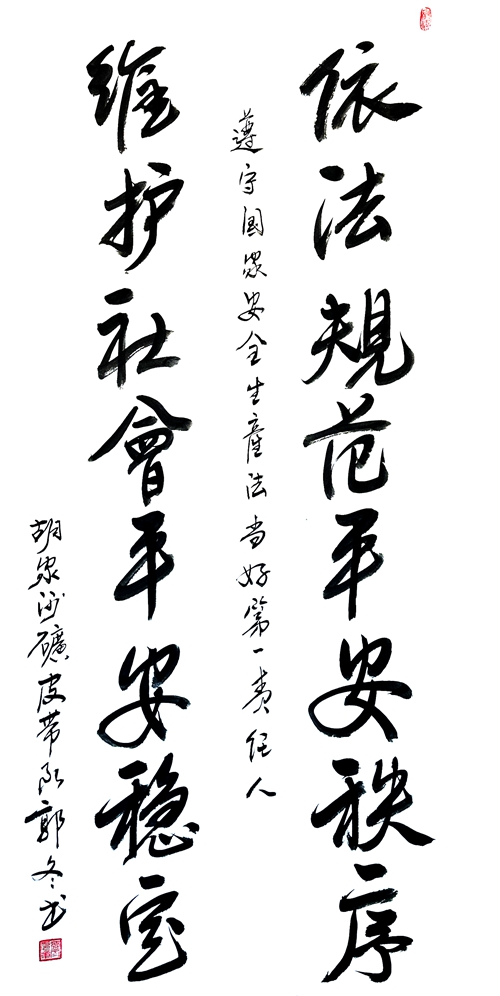 依法規范平安秩序
遵守国家安全生產法当好第一责任人
维护社會平安稳定
胡家河礦皮带队郭冬书